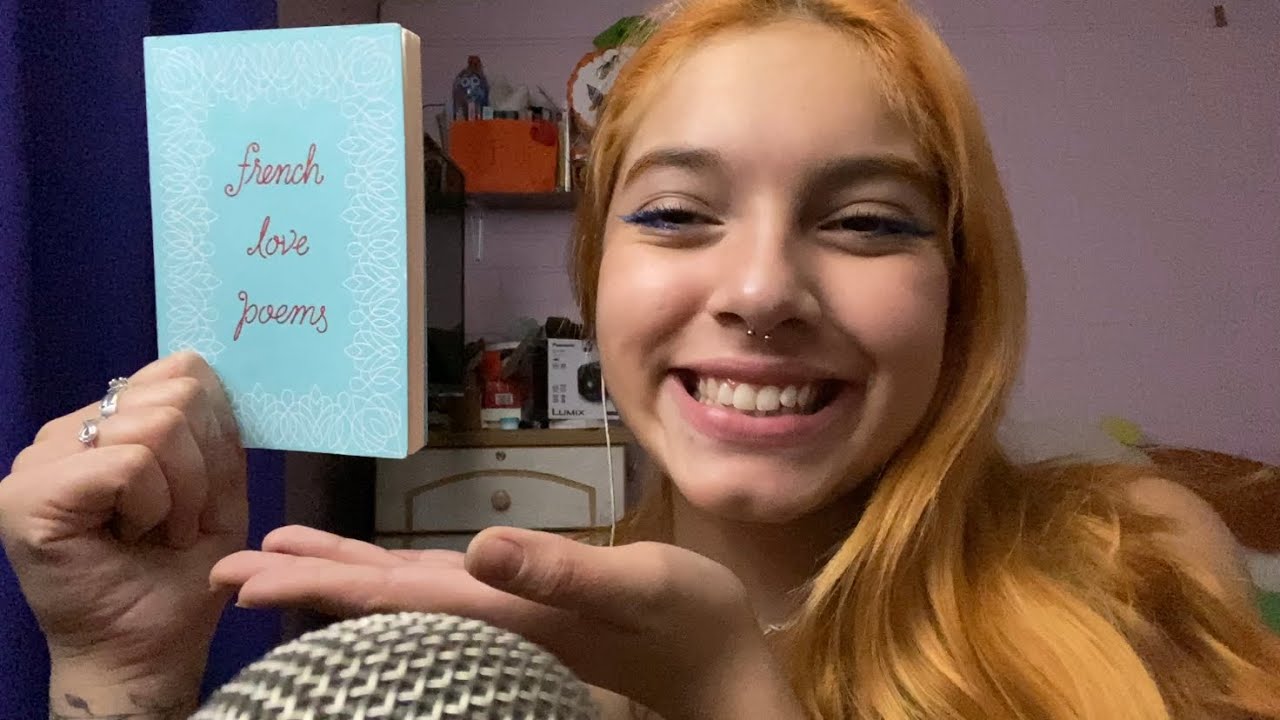 french
love
poems
Panasonic
LUMIX